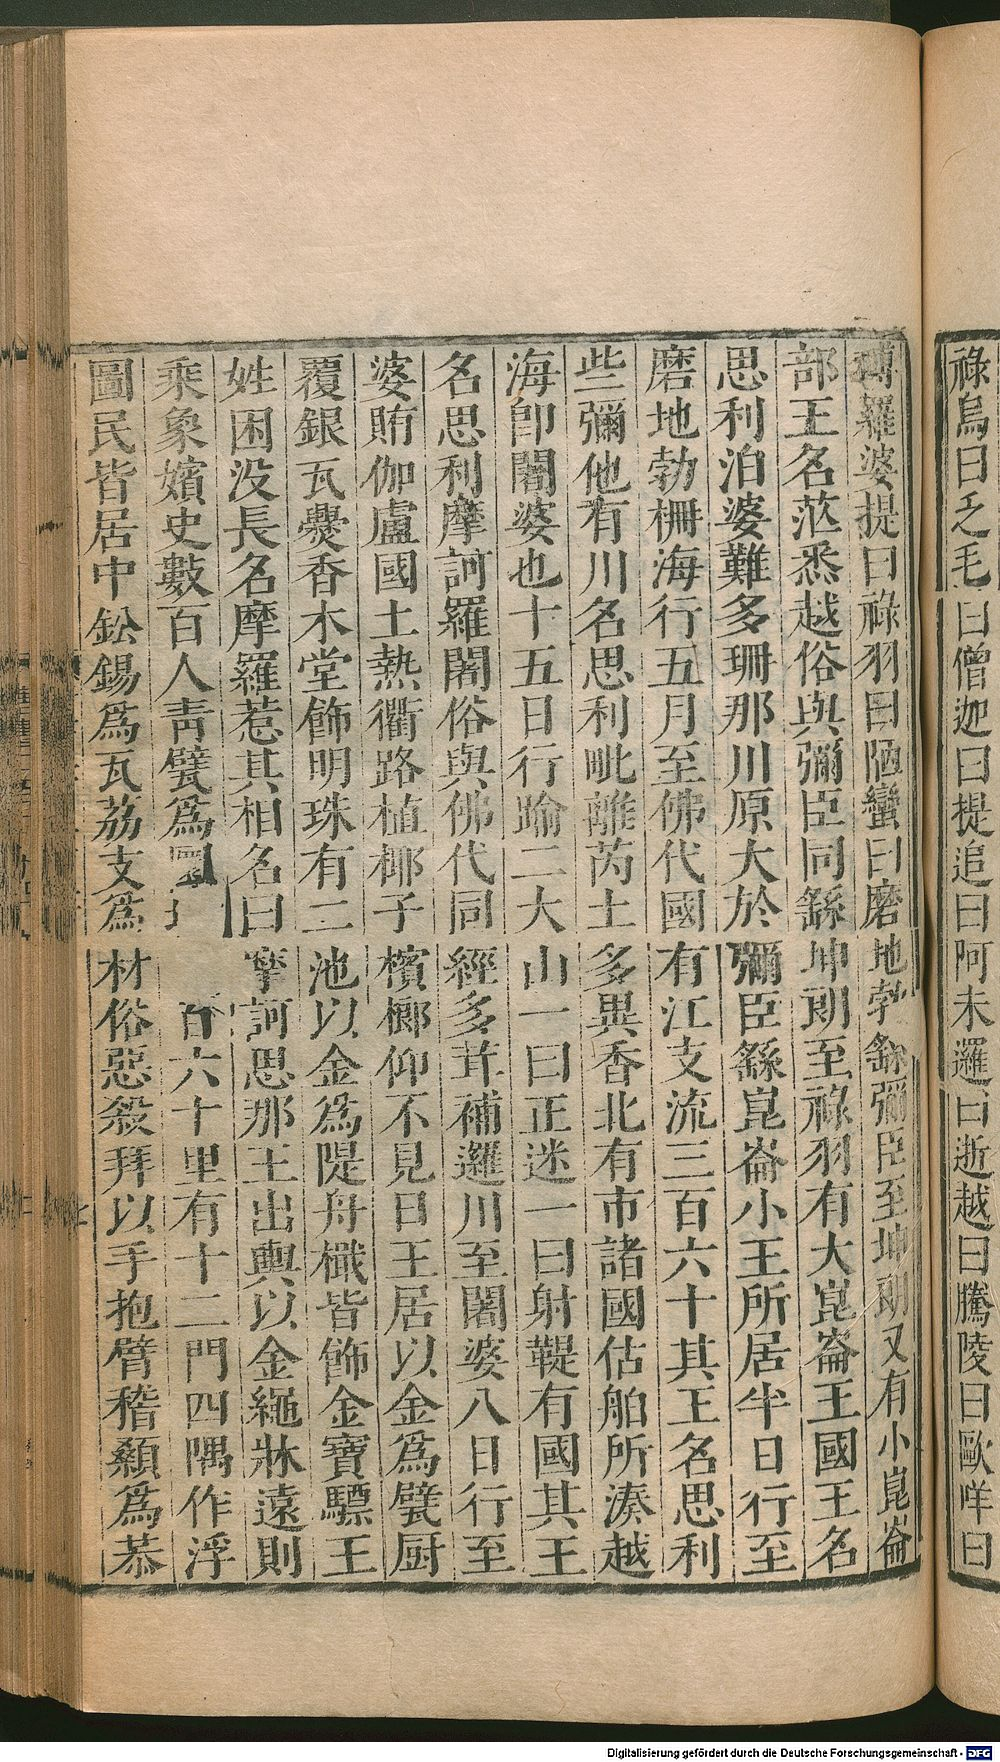 祿烏曰乏毛曰僧迦曰提追曰阿末邏曰逝越曰騰陵曰歐咩曰
磚羅婆提曰祿羽曰陋蠻曰磨地勃繇彌臣至坤朗又有小崑崙
部王名茫悉越俗與彌臣同繇坤朗至祿羽有大崑崙王國王名
思利泊婆難多珊那川原大於彌臣繇崑崙小王所居半日行至
磨地勃柵海行五月至佛代國有江支流三百六十其王名思利
些彌他有川名思利毗離芮土多異香北有市諸國估舶所湊越
海卽闍婆也十五日行踰二大山一曰正迷一曰射鞮有國其王
名思利摩訶羅闍俗與佛代同經多茸補邏川至闍婆八日行至
婆賄伽盧國土熱衢路植椰子檳榔仰不見日王居以金爲甓厨
覆銀瓦爨香木堂飾明珠有二池以金爲隄舟檝皆飾金寶驃王
姓困没長名摩羅惹其相名曰摩訶思那王出輿以金繩牀遠則
乘象嬪史數百人靑甓爲圓 百六十里有十二門四隅作浮
圖民皆居中鈆錫爲瓦荔支爲材俗惡殺拜以手抱臂稽顙爲恭
Digitalisierung gefördert durch die Deutsche Forschungsgemeinschaft - DFG